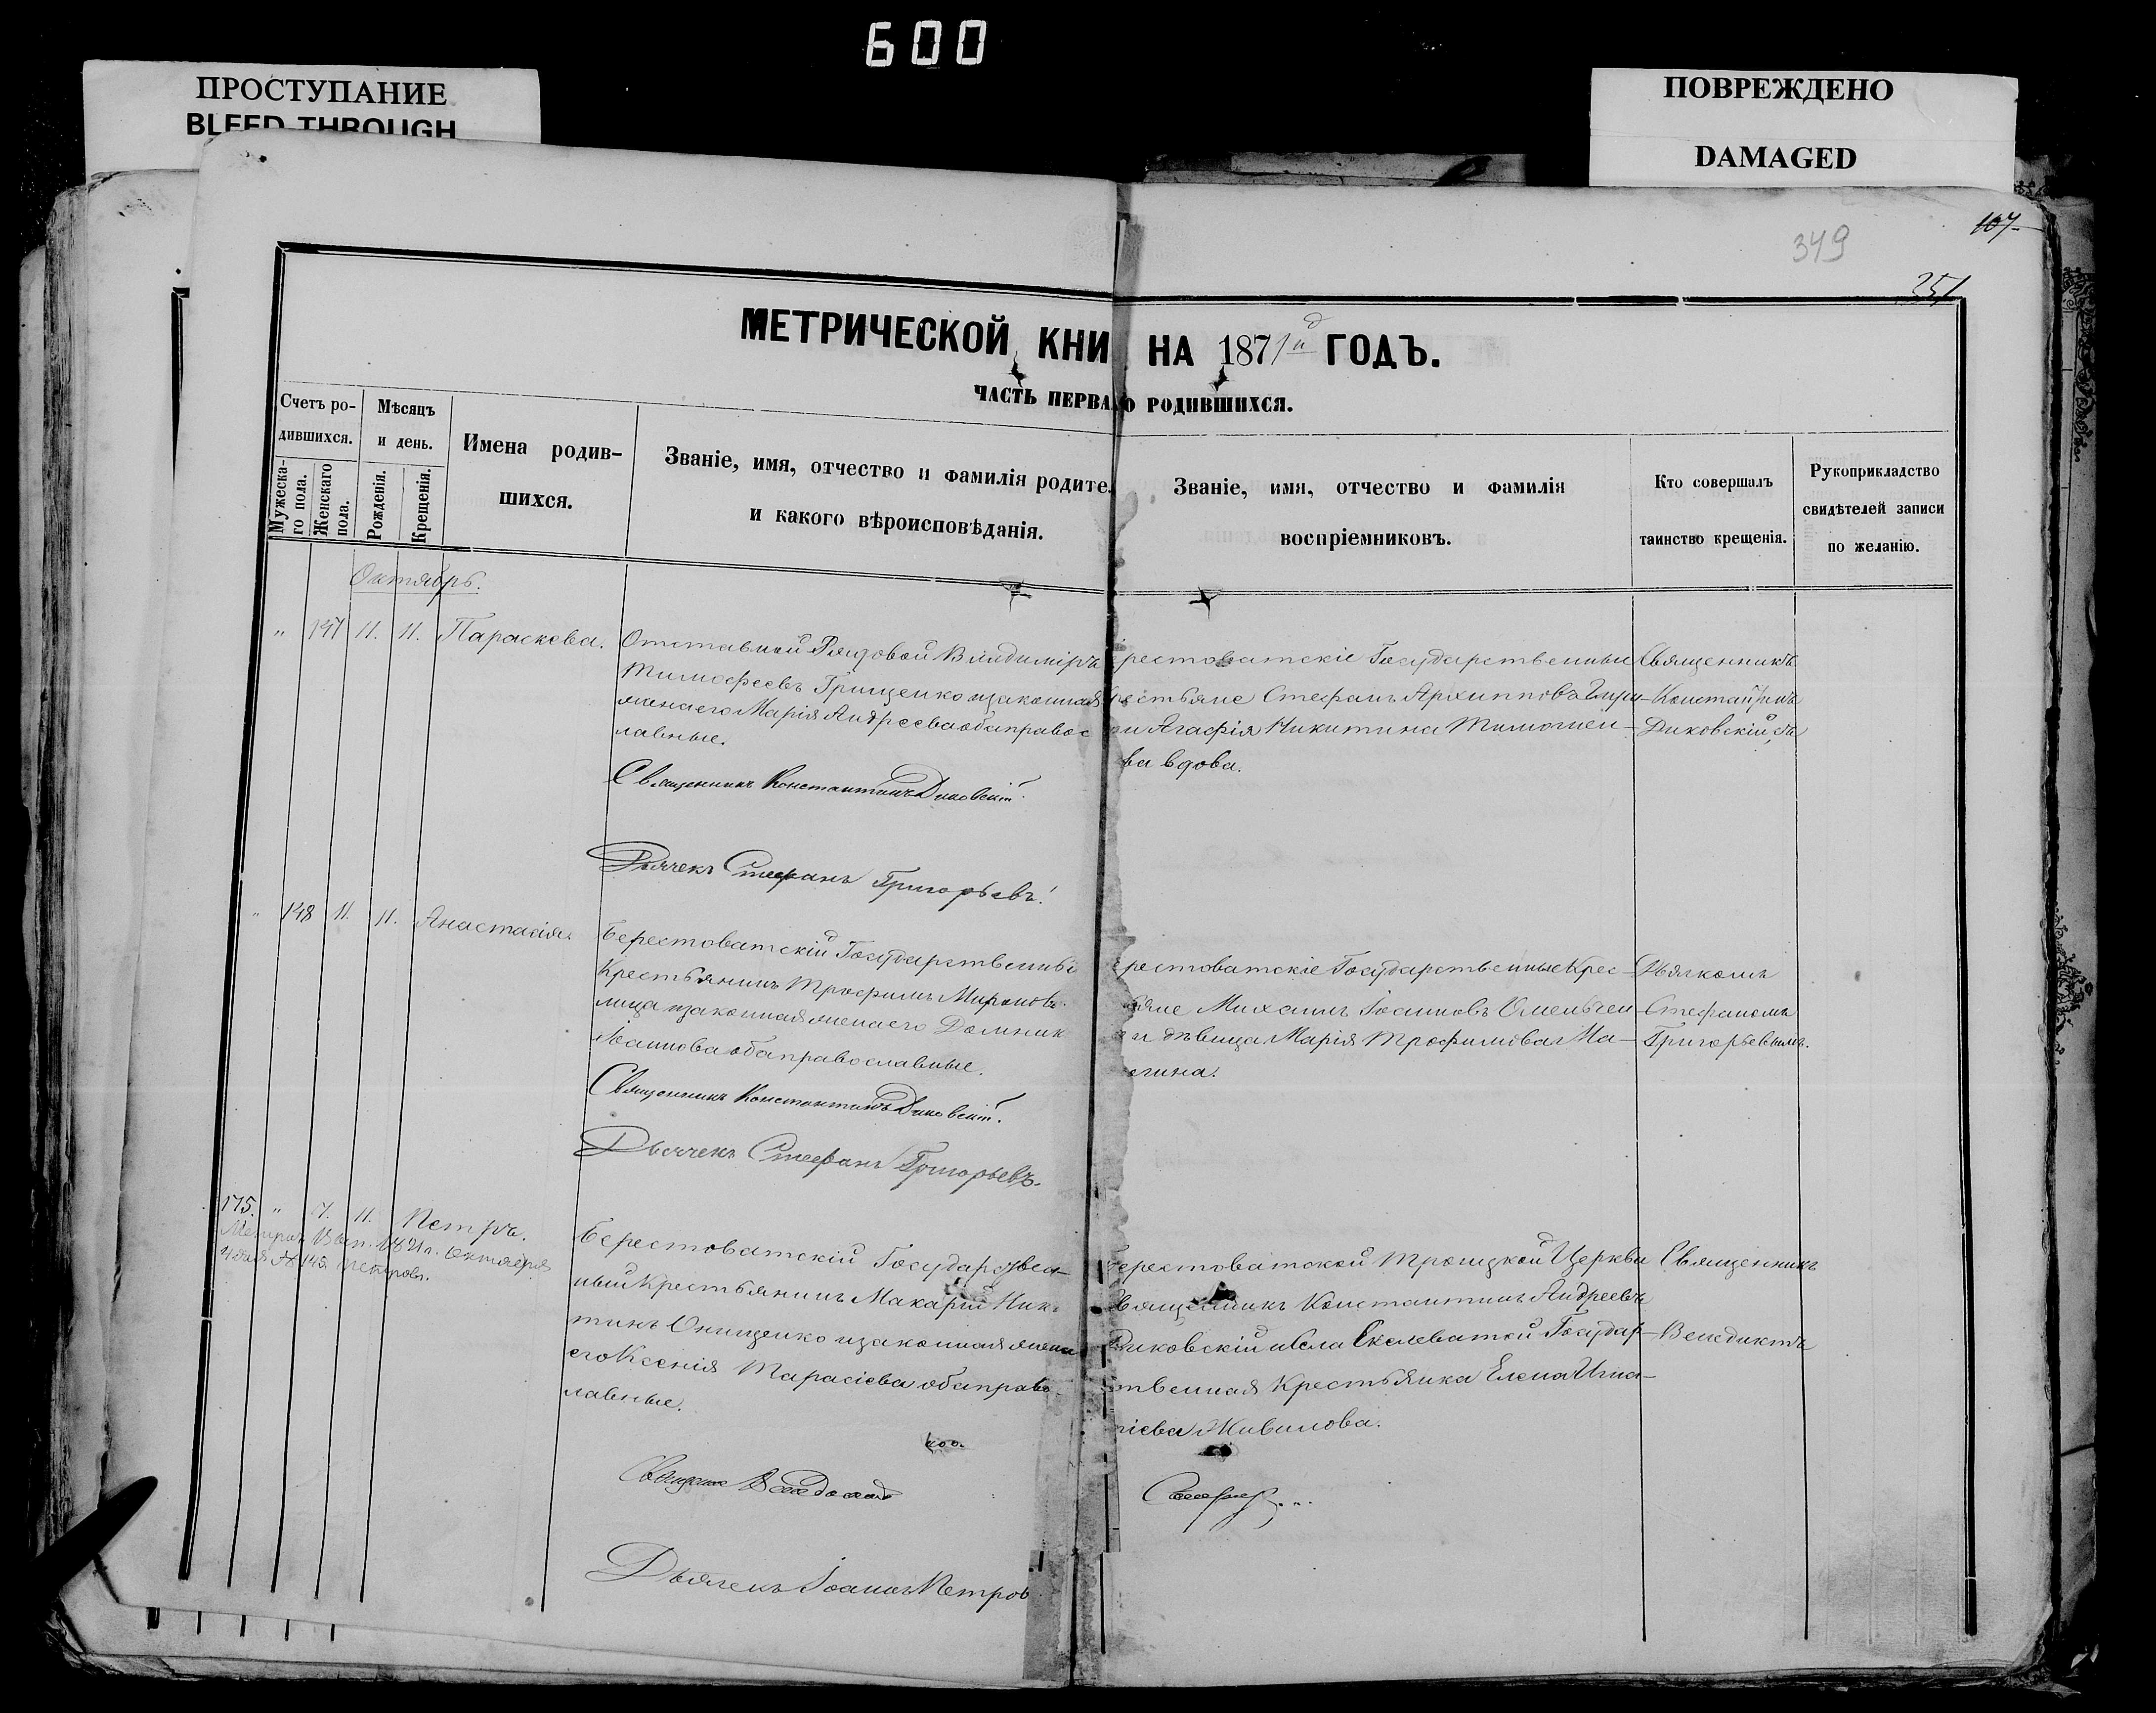 600
ПРОСТУПАНИЕ
BLEED THROUGH
ПОВРЕЖДЕНО
DAMAGED
107
349
351
МЕТРИЧЕСКОЙ КНИ НА 1871й ГОДЪ.
ЧАСТЬ ПЕРВА О РОДИВШИХСЯ.
Счетъ ро-
дившихся.
Мужеска-
го пола.
Женскаго
пола.
Мѣсяцъ
и день.
Рожденія.
Крещенія.
Имена родив-
шихся.
Званіе, имя, отчество и фамилія родите
и какого вѣроисповѣданія.
Званіе, имя, отчество и фамилія
воспріемниковъ.
Кто совершалъ
таинство крещенія.
Рукоприкладство
свидѣтелей записи
по желанію.
Октябрь.
" 147 11. 11. Параскева.
Отставной Рядовой Владиміръ
Тимофеевъ Грищенко изаконная
жена его Марія Андреева оба правос
лавные.
Священникъ Константинъ Диковскій.
Дьячекъ Стефанъ Григорьевъ.
рестоватскіе Государственныи
рестьяне Стефанъ Архипповъ
и Агафія Никитина Тимошен-
ва вдова.
Священникъ
Константинъ
Диковскій съ
" 148 11. 11. Анастасія.
Берестоватскій Государственны
Крестьянинъ Трофимъ Миронов
изаконная жена его Домник
Іоаннова оба православные.
Священникъ Константинъ Диковскій.
Дьячекъ Стефанъ Григорьевъ.
рестоватскіе Государственные Крес-
яне Михаилъ Іоанновъ Омельчен
и дѣвица Марія Трофимова Ма-
Дьячкомъ
Стефаномъ
Григорьевымъ.
175. " 7. 11. Петръ.
Октября
Берестоватскій Государствен-
ный Крестьянинъ Макарій Ник
тинъ Онищенко изаконная жена
его Ксенія Тарасіева оба право
лавные.
Дьячекъ Іоаннъ Петров
ерестоватской Троицкой Церкви
вященникъ Константинъ Андреевъ
Диковскій и села Екалеватой Государ-
твенная Крестьянка Елена Игна-
тіева Живилова.
Священникъ
Венедиктъ